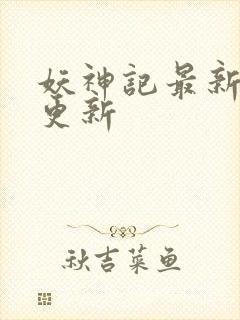 妖神記最新
更新
秋吉菜鱼